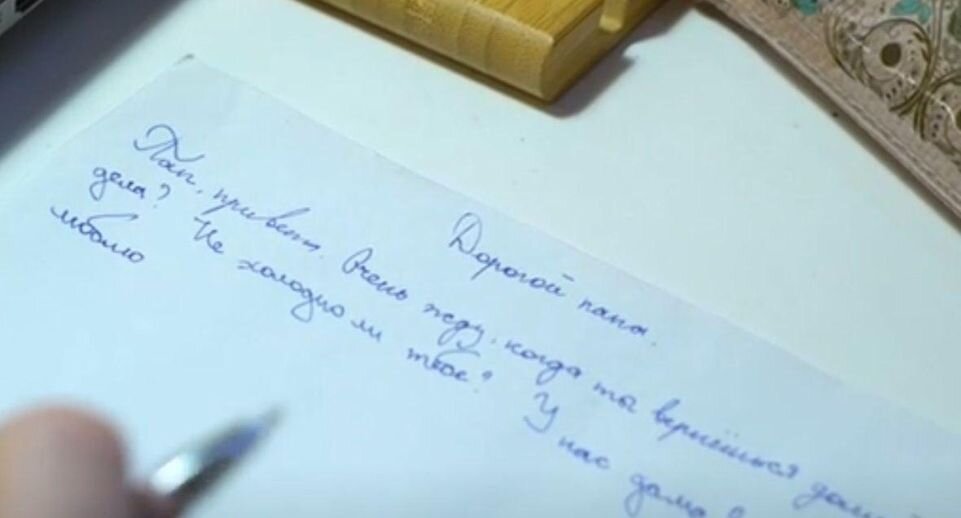 Дорогой папа.
Пап, привет. Очень жду, когда ты вернёшься
дела? Не холодно ли тебе? У нас дома
люблю